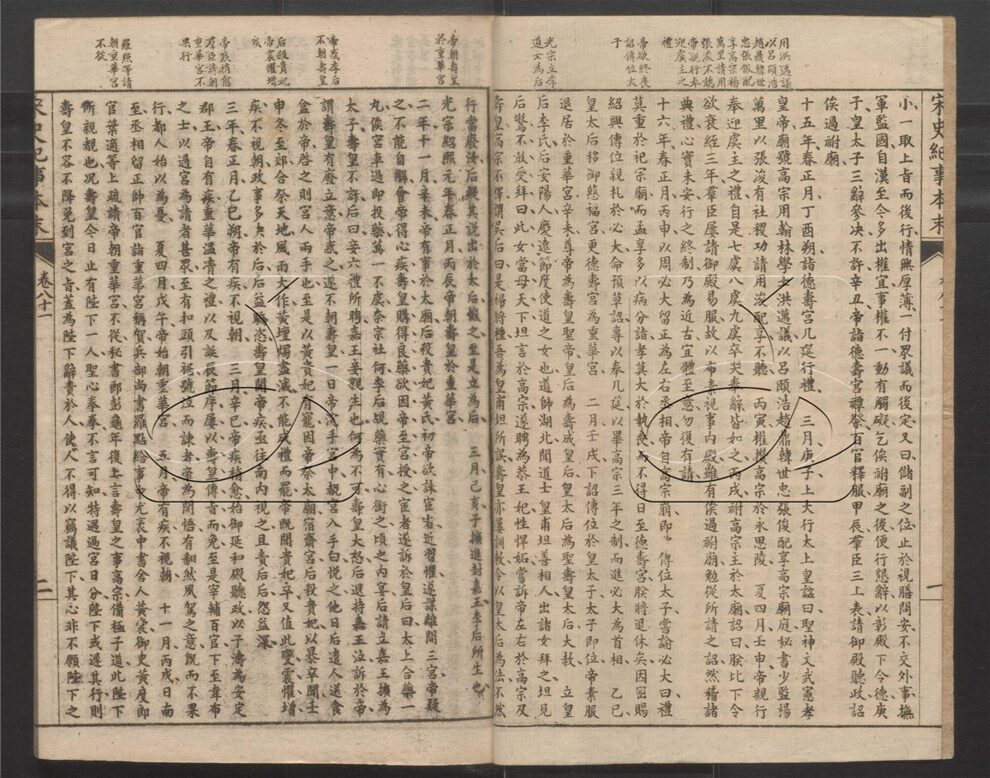 用洪邁議
以呂頤浩
趙鼎韓世
忠張俊配
享高宗楊
萬里請用
張浚不聽
帝親行奉
迎虞主之
禮
帝欲終喪
詔傳位太
子
光宗立李
道女為后
宋史紀事本末
一
小一取上旨而後行情無厚薄一付眾議而後定又曰儲副之位止於視膳問安不交外事撫
軍監國自漢至今多出權宜事權不一動有觸礙乞俟祔廟之後便行懇辭以彰殿下令德庚
子皇太子三辭參決不許辛丑帝詣德壽宮禫祭百官釋服甲辰羣臣三上表請御殿聽政詔
俟過祔廟
十五年春正月丁酉朔詣德壽宮几筵行禮 三月庚子上大行太上皇諡曰聖神文武憲孝
皇帝廟號高宗用翰林學士洪邁議以呂頤浩趙鼎韓世忠張俊配享高宗廟庭秘書少監楊
萬里以張浚有社稷功請用浚配享不聽 丙寅權攢高宗於永思陵 夏四月壬申帝親行
奉迎虞主之禮自是七虞八虞九虞卒哭奉辭皆如之丙戌祔高宗主於太廟詔曰朕比下令
欲衰絰三年羣臣屢請御殿易服故以布素視事內殿雖有俟過祔廟勉從所請之詔然稽諸
典禮心實未安行之終制乃為近古宜體至意勿復有請
十六年春正月丙申以周必大留正為左右丞相帝自高宗崩即 傳位太子嘗諭必大曰禮
莫重於祀宗廟而孟享多以病分詣孝莫大於執喪而不得日至德壽宮朕將退休矣因密賜
紹興傳位親札於必大命預草詔專以奉几筵以畢高宗三年之制而進必大為首相 乙巳
皇太后移御慈福宮更德壽宮為重華宮 二月壬戌下詔傳位於皇太子太子即位帝素服
退居於重華宮辛未尊帝為壽皇聖帝皇后為壽成皇后皇太后為聖壽皇太后大赦 立皇
后李氏后安陽人慶遠節度使道之女也道帥湖北聞道士皇甫坦善相人出諸女拜之坦見
后驚不敢受拜曰此女當母天下坦言於高宗遂聘為恭王妃性悍妬嘗訴帝左右於高宗及
壽皇高宗不懌謂吳后曰是婦將種吾為皇甫坦所誤壽皇亦屢訓敕令以皇太后為法不然
帝朝壽皇
於重華宮
帝或李后
不朝壽皇
后殺貴妃
帝震懼增
疾
帝疾稍愈
羣臣請朝
重華宮不
果行
羅點等請
朝重華宮
不從
行當廢汝后疑其說出於太后憾之至是立為后 三月己亥子擴進封嘉王李后所生也
光宗紹熙元年春正月丙辰帝朝壽皇於重華宮
二年十一月辛未帝有事於太廟后殺貴妃黃氏初帝欲誅宦者近習懼遂謀離間三宮帝疑
之不能自解會帝得心疾壽皇購得良藥欲因帝至宮授之宦者遂訴於皇后曰太上合藥一
丸俟宮車過即投藥萬一不虞奈宗社何李后覘藥實有心銜之頃之內宴后請立嘉王擴為
太子壽皇不許后曰妾六禮所聘嘉王妾親生也何為不可壽皇大怒后退持嘉王泣訴於帝
謂壽皇有廢立意帝惑之遂不朝壽皇一日帝浣手宮中覩宮人手白悅之他日后遣人送食
盒於帝啓之則宮人兩手也至是以黃貴妃有寵因帝祭太廟宿齋宮后殺貴妃以暴卒聞壬
申冬至郊合祭天地風雨大作黃壇燭盡滅不能成禮而罷帝既聞貴妃卒又值此變震懼增
疾不視朝政事多決於后后益驕恣壽皇聞帝疾亟往南內視之且責后后怨益深
三年春正月乙巳朔帝有疾不視朝 三月辛巳帝疾稍愈始御延和殿聽政以子濤為安定
郡王帝自有疾重華溫凊之禮以及誕辰節序屢以壽皇傳旨而免至是宰輔百官下至韋布
之士以過宮為請者甚眾至有扣頭引裾號泣而諫者帝為開悟有翻然夙駕之意既而不果
行都人始以為憂 夏四月戊午帝始朝重華宮 五月帝有疾不視朝 十一月丙戌日南
至丞相留正帥百官詣重華宮稱賀兵部尚書羅點給事中尤袤中書舍人黃裳御史黃度郎
官葉適等上疏請帝朝重華宮不從秘書郎彭龜年復上言壽皇之事高宗備極子道此陛下
所親覩也況壽皇今日止有陛下一人聖心拳拳不言可知特遇過宮日分陛下或遲其行則
壽皇不容不降免到宮之旨蓋為陛下辭責於人使人不得以竊議陛下其心非不願陛下之
宋史紀事本末
卷八十一
二